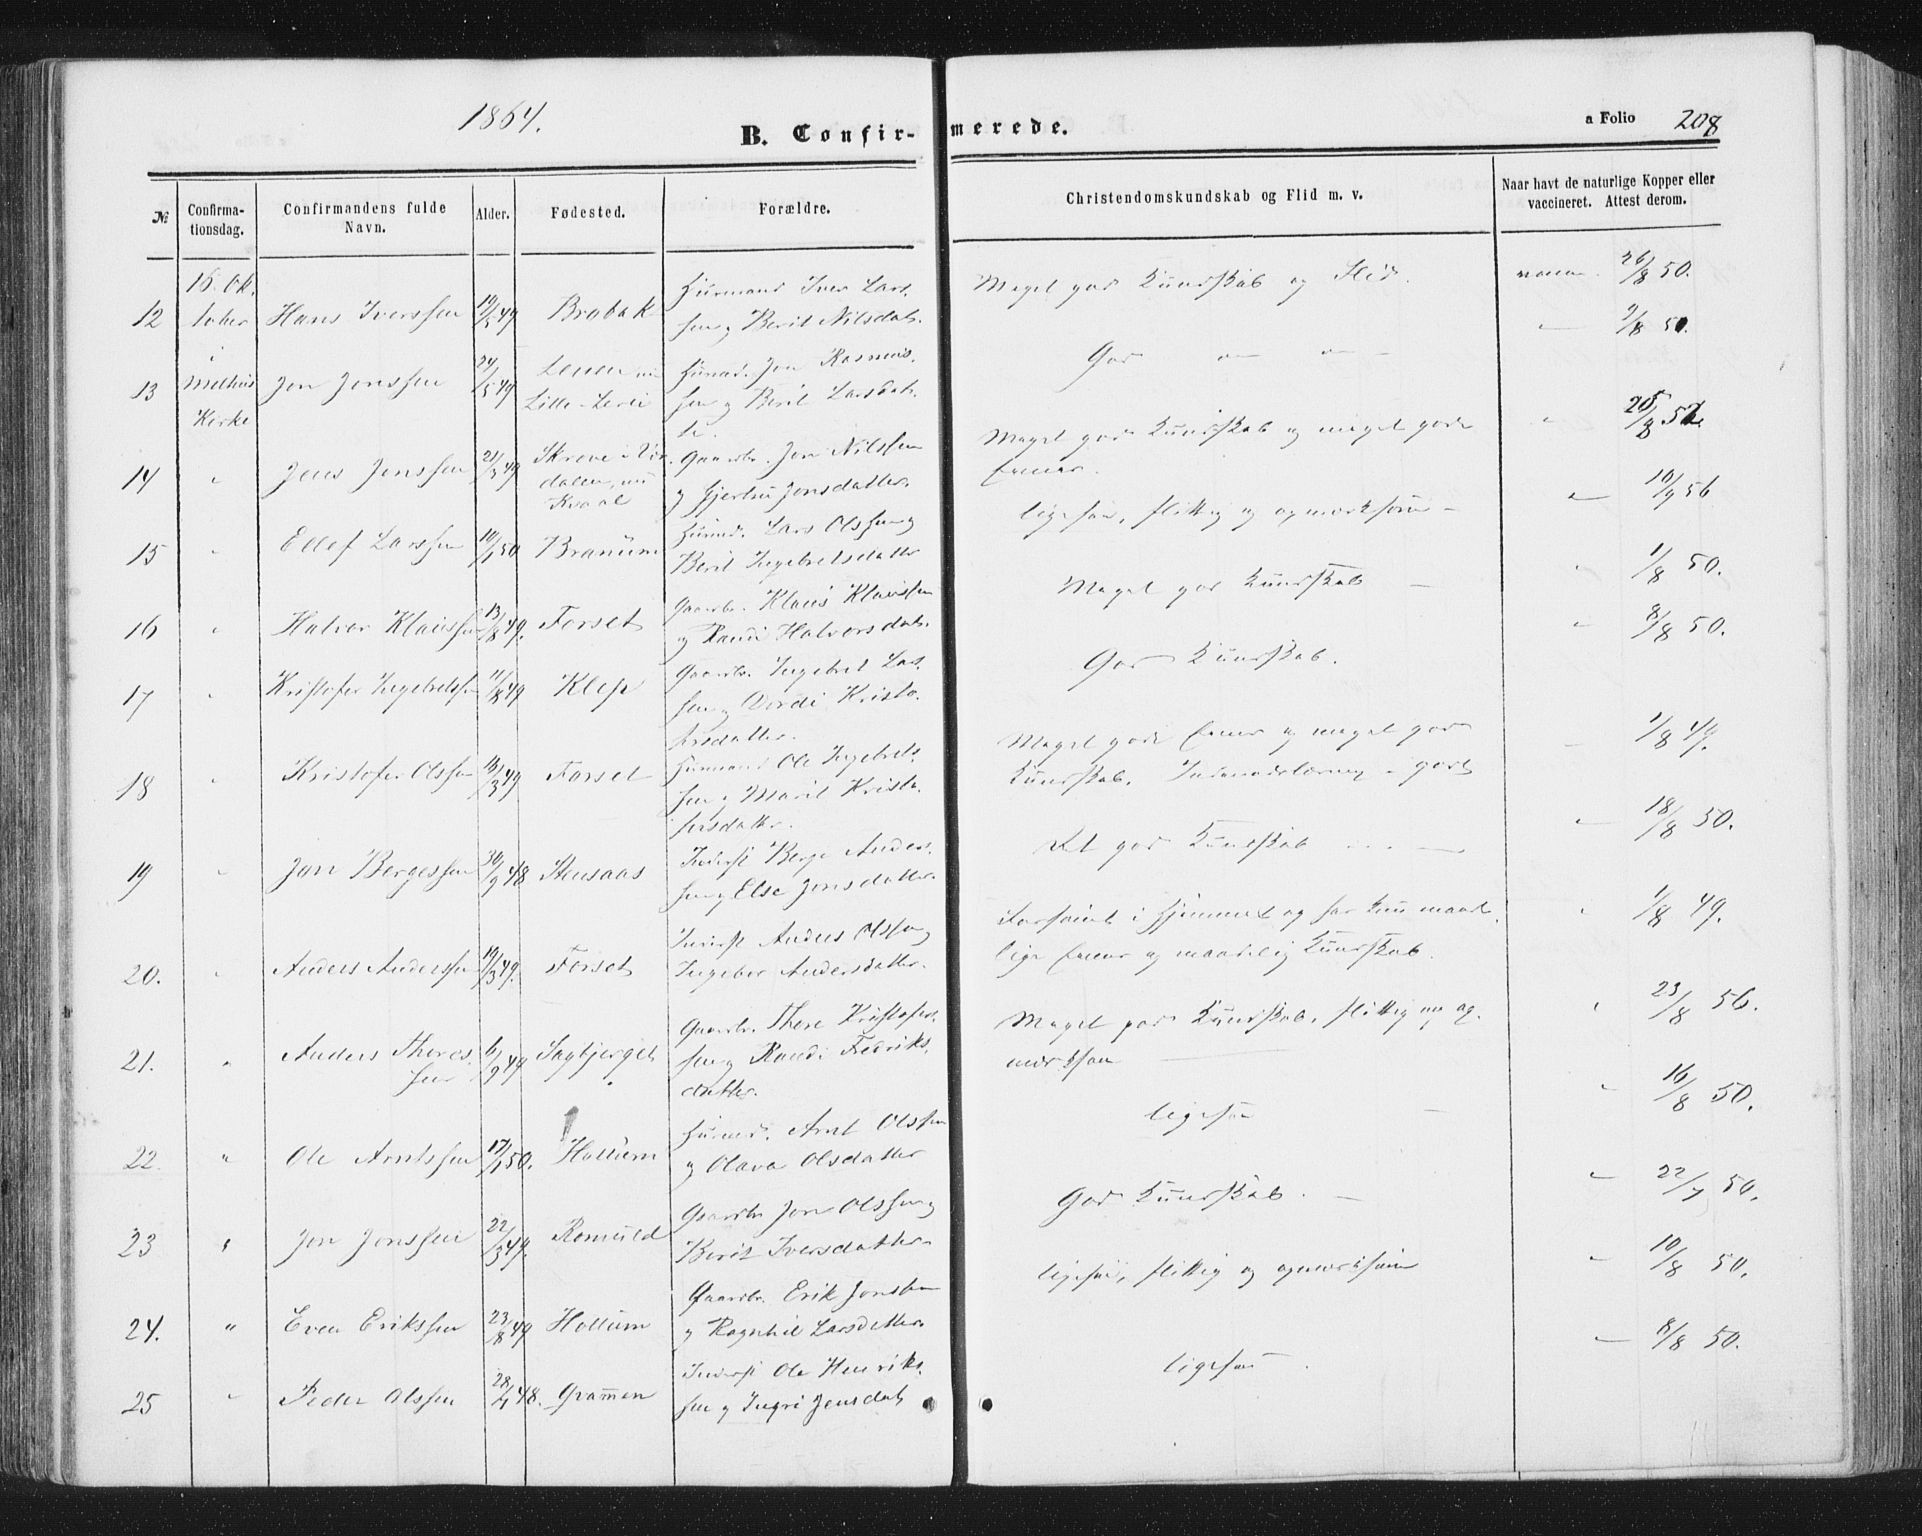 1864.
B. Confir-merede.
a Folio 208
№ Confirma-tionsdag. Confirmandens fulde Navn. Alder. Fødested. Forældre. Christendomskundskab og Flid m. v. Naar havt de naturlige Kopper eller vaccineret. Attest derom.
16. Ok.
12 tober Hans Iverssen 19/5 49 Brobak Huusmand Iver Lars.
sen og Berit Nilsdat.
Meget god Kundskab og Flid. 26/8 50.
i
13 Melhus Jon Jonssen 24/5 49
Kirke
Husmd. Jon Rasmus.
sen og Berit Larsdat.
God 9/8 50.
14 " Jens Jonssen 21/3 49 Skrove i Vær
dalen, nu
Kvaal
Gaardbr. Jon Nilssen
og Gjertru Jonsdatter.
Meget god Kundskab og meget gode
Evner.
15 " Ellef Larssen 10/1 50 Branum Husmd. Lars Olssen og
Berit Ingebretsdatter
ligesaa, flittig og opmærksom 10/9 56
16 " Halvor Klaussen 13/8 49. Forset Gaardbr. Klaus Klaussen
og Randi Halvorsdat.
Meget god Kundskab 1/8 50.
17 " Kristofer Ingebretssen 11/8 49 Klep Gaardbr. Ingebret Lar.
sen og Dordi Kristo
fersdatter.
God Kundskab. 8/8 50.
18 " Kristofer Olssen 18/3 49 Forset Husmand Ole Ingebrets.
sen og Marit Kristo.
fersdatter.
Meget gode Evner og meget god
Kundskab. 1/8 49.
19 " Jon Bergessen 30/9 48 Stensaas Inderst Berge Anders.
sen og Else Jonsdatter.
Ret god Kundskab 18/8 50.
20. " Anders Anderssen 19/3 49. Forset Inderst Anders Olssen og
Ingebor Andersdatter.
Forsømt i Hjemmet og har kun maade.
lige Evner og maadelig Kundskab. 1/8 49.
21. " Anders Thores
sen 6/9 49 Sagbjerget Gaardbr. Thore Kristofer.
sen og Randi Fedriks.
datter.
Meget god Kundskab, flittig og op.
mærksom 23/8 56.
22. " Ole Arntssen 17/1 50. Hollum Husmd. Arnt Olssen
og Olava Olsdatter
ligesaa 16/8 50.
23 " Jon Jonssen 22/3 49. Romuld Gaardbr Jon Olssen og
Berit Iversdatter
God Kundskab. 22/7 50.
24. " Even Erikssen 23/8 49 Hollum Gaardbr. Erik Jonssen
og Ragnhil Larsdatter
ligesaa, flittig og opmærksom 10/8 50.
25 " Peder Olssen 28/4 48. Gravmen Inderst Ole Henriks.
sen og Ingri Jensdat
ligesaa. 8/8 50.